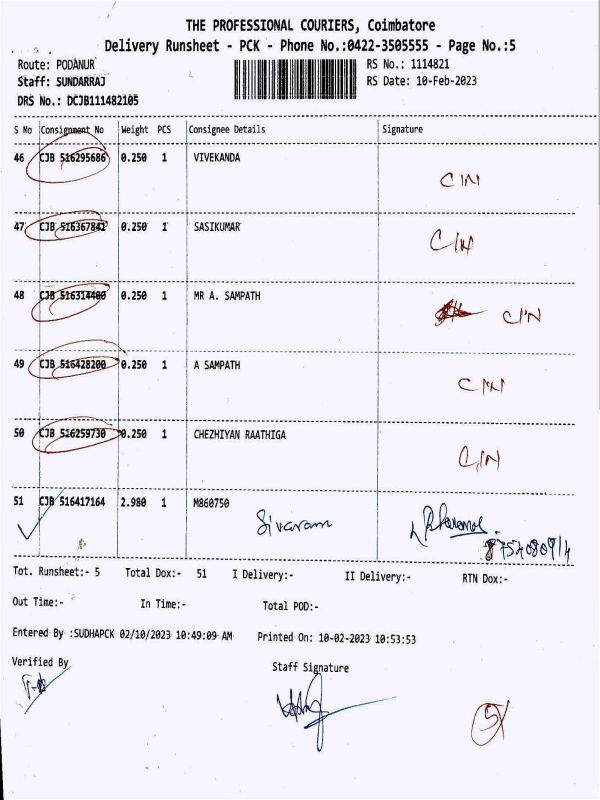 THE PROFESSIONAL COURIERS, Coimbatore
Delivery Runsheet - PCK - Phone No.:0422-3505555 - Page No.:5
Route: PODANUR RS No.: 1114821
Staff: SUNDARRAJ RS Date: 10-Feb-2023
DRS No.: DCJB111482105
S No Consignment No Weight PCS Consignee Details Signature
46 CJB 516295686 0.250 1 VIVEKANDA CIN
47 CJB 516367841 0.250 1 SASIKUMAR CIN
48 CJB 516314400 0.250 1 MR A. SAMPATH CIN
49 CJB 516428200 0.250 1 A SAMPATH CIN
50 CJB 516259730 0.250 1 CHEZHIYAN RAATHIGA CIN
51 CJB 516417164 2.980 1 M860750
Sivaram
Tot. Runsheet:- 5 Total Dox:- 51 I Delivery:- II Delivery:- RTN Dox:-
Out Time:- In Time:- Total POD:-
Entered By :SUDHAPCK 02/10/2023 10:49:09 AM Printed On: 10-02-2023 10:53:53
Verified By Staff Signature
5